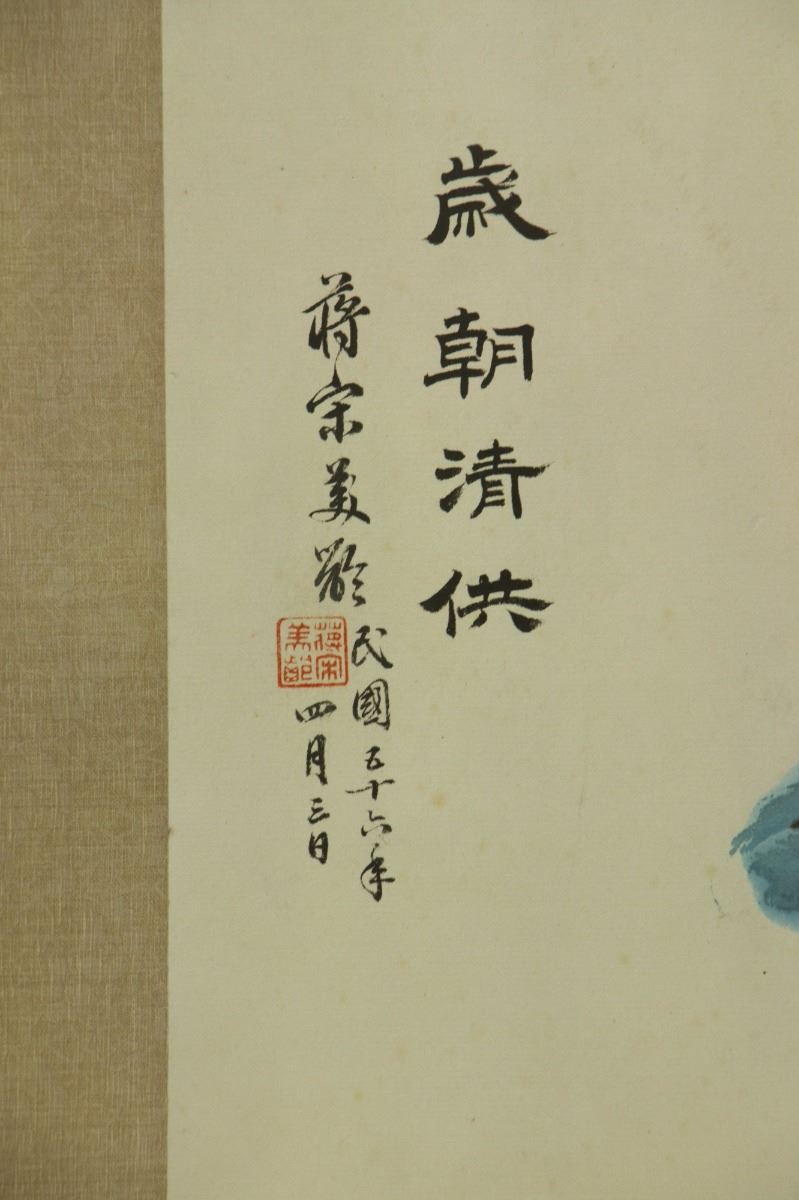 歲朝清供
蔣宋美齡
民國五十六年
四月三日
蔣宋
美齡